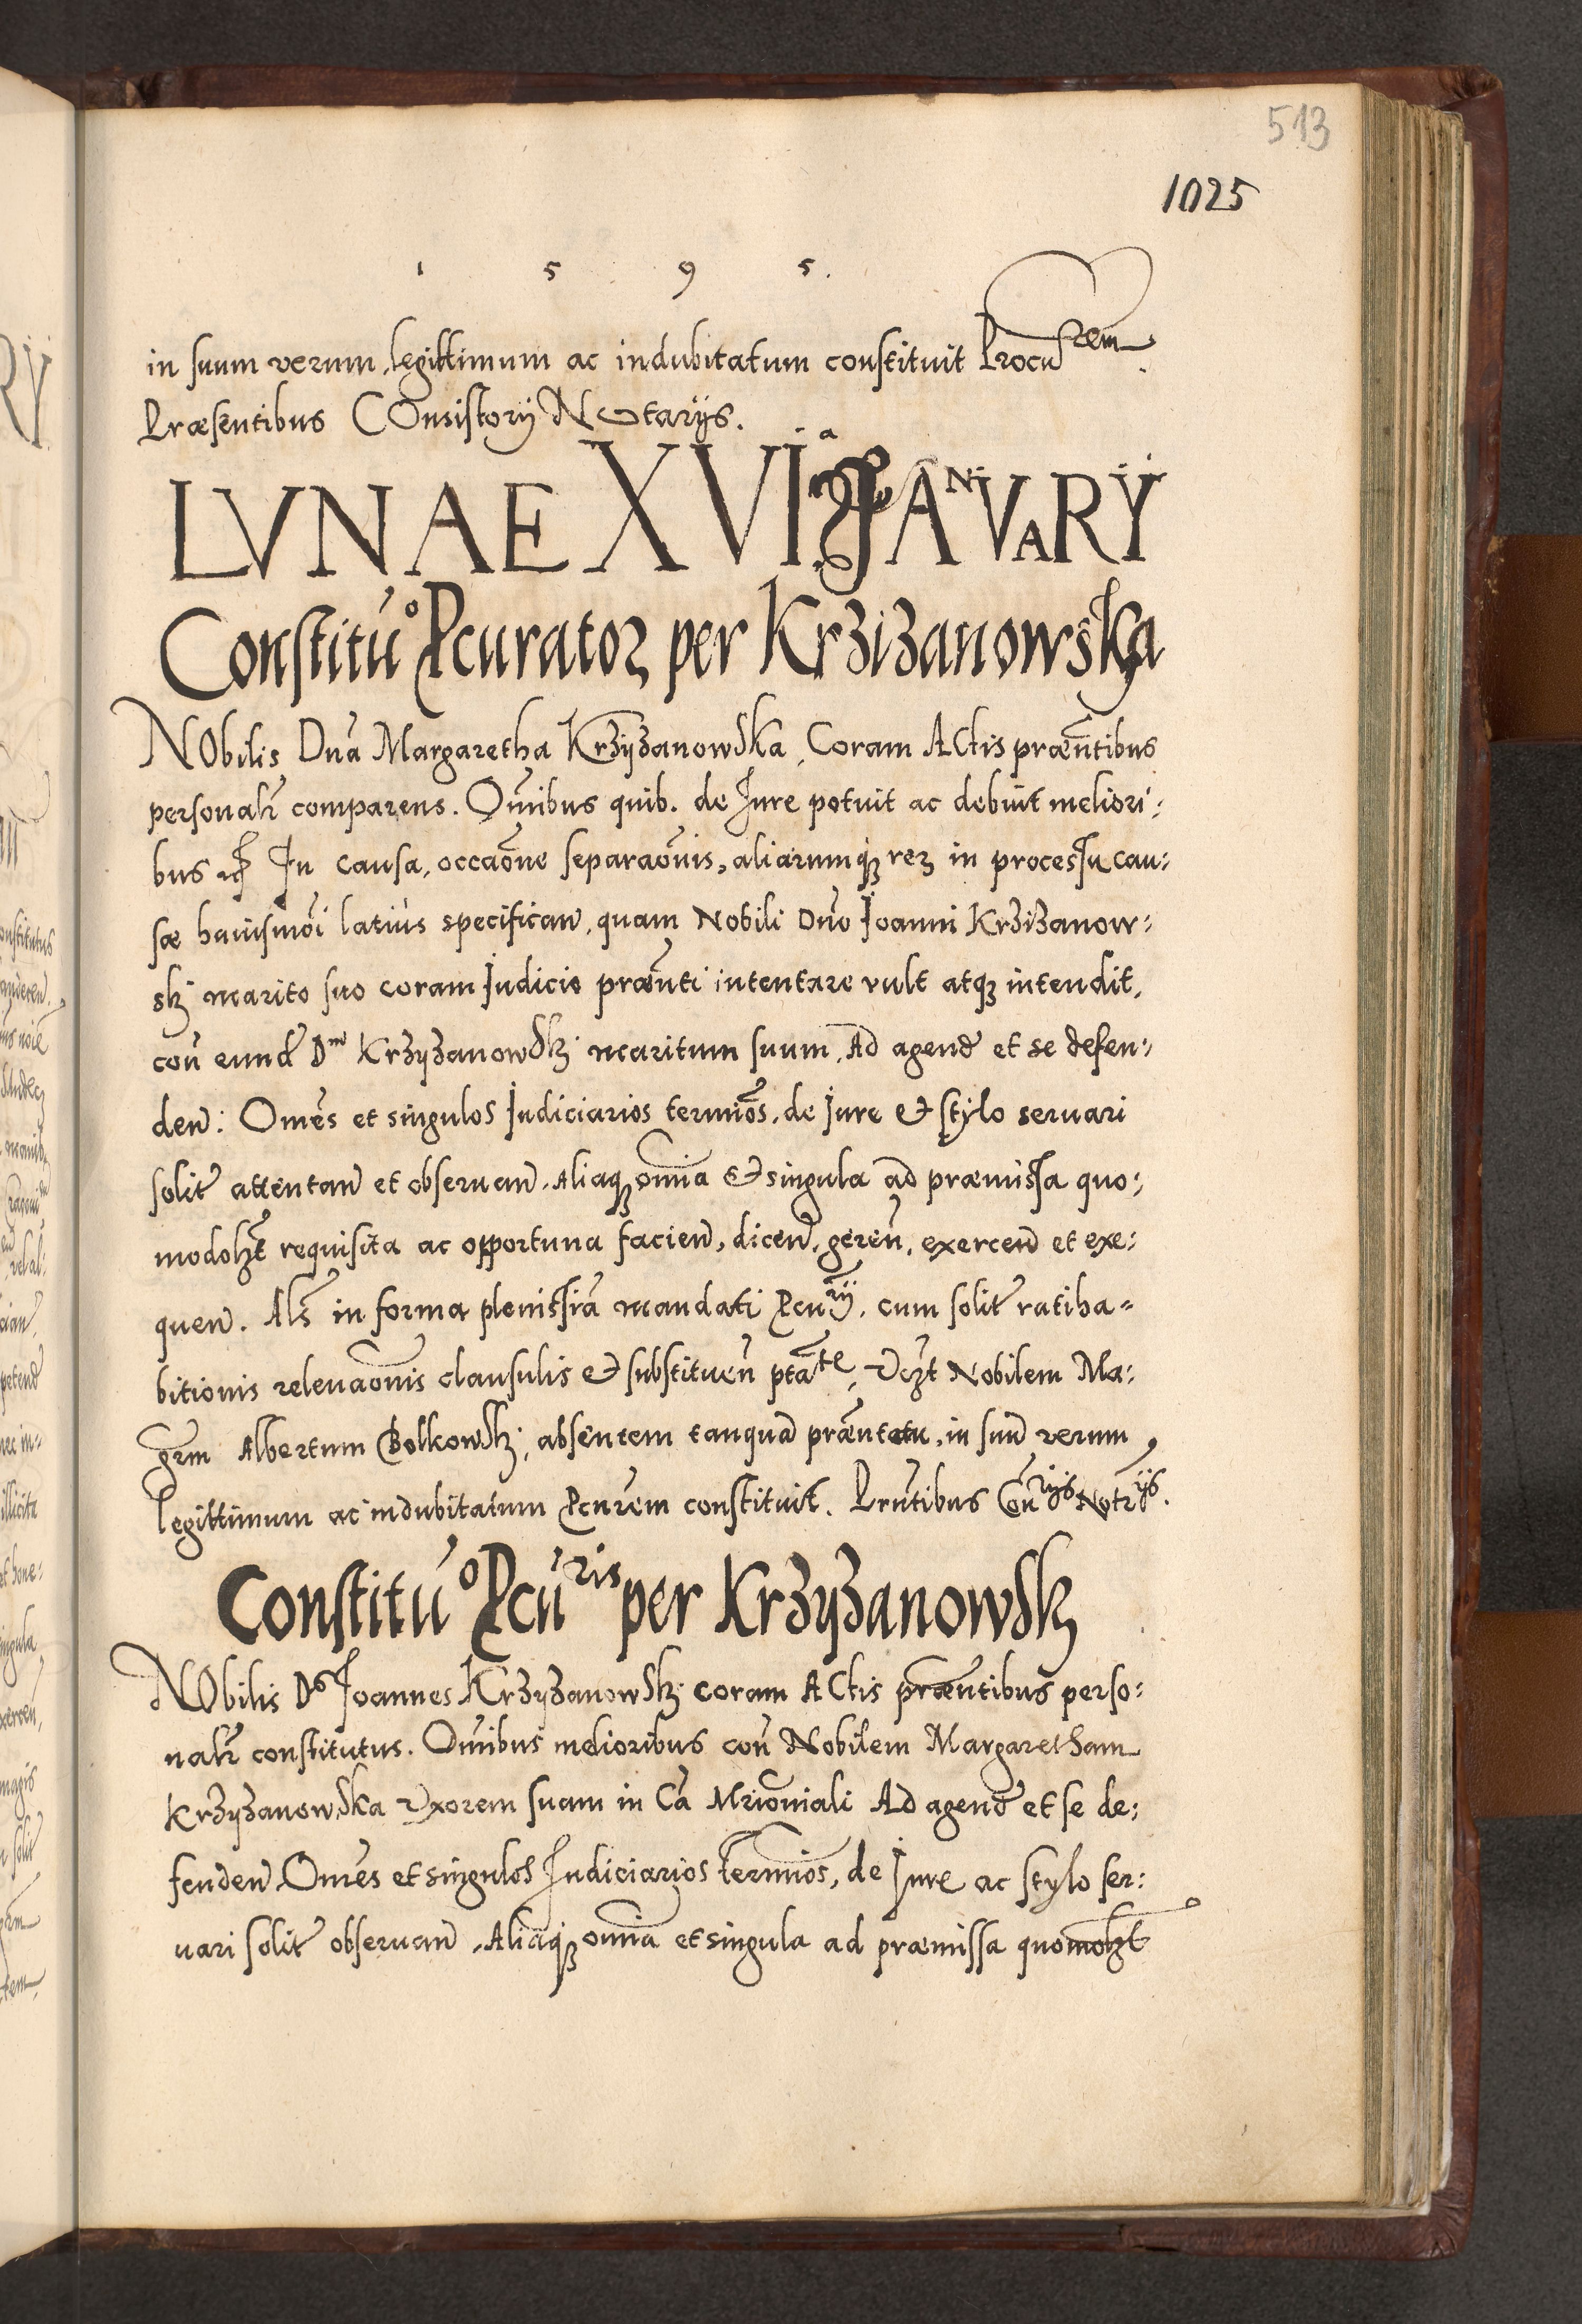 513
1025
1 5 9 5.
in suum verum, legittimum ac indubitatum constituit Procurem.
Præsentibus COnsistorÿ NOtarÿs.
LVNAE XVIa IANVARY
Constituo Pcurator per Krzizanowska
NObilis Dna Margaretha Krzyzanowska, Coram ACtis præntibus
personalr comparens. Omibus quib. de Iure potuit ac debuit meliori:
bus In causa, occaone separaonis, aliarumqz rez in processu cau:
sæ huiusmoi latius specifican, quam Nobili Dno Ioanni Krzizanow:
skj marito suo coram Iudicio prænti intentare vult atqz intendit,
con eund Dnm Krzyzanowskj maritum suum, Ad agend et se defen:
den: Omes et singulos Iudiciarios termios, de Iure et stylo seruari
solit attentan et obseruan, Aliaqz omia et singula ad præmissa quo:
modolzt requisita ac opportuna facien, dicen, geren, exercen et exe:
quen. Als in forma plenissia mandati Pcurÿ, cum solit ratiha=
bitionis releuaonis clausulis et substituen ptate, Vczt Nobilem Ma:
grm Albertum Bolkowskj, absentem tanqua præntem, in suu verum
legittimum ac indubitatum Pcurem constituit. Prntibus Conrÿs Notrÿs.
Constituo Pcuris per Krzyzanowskj
NObilis Ds Ioannes Krzyzanowskj coram ACtis præntibus perso:
nalr constitutus. Omibus melioribus con Nobilem Margaretham
Krzyzanowska Vxorem suam in Ca Mrioniali Ad agend et se de:
fenden, Omes et singulos Iudiciarios termios, de Iure ac stylo ser:
uari solit obseruan, Aliaqz omia et singula ad præmissa quomolzt